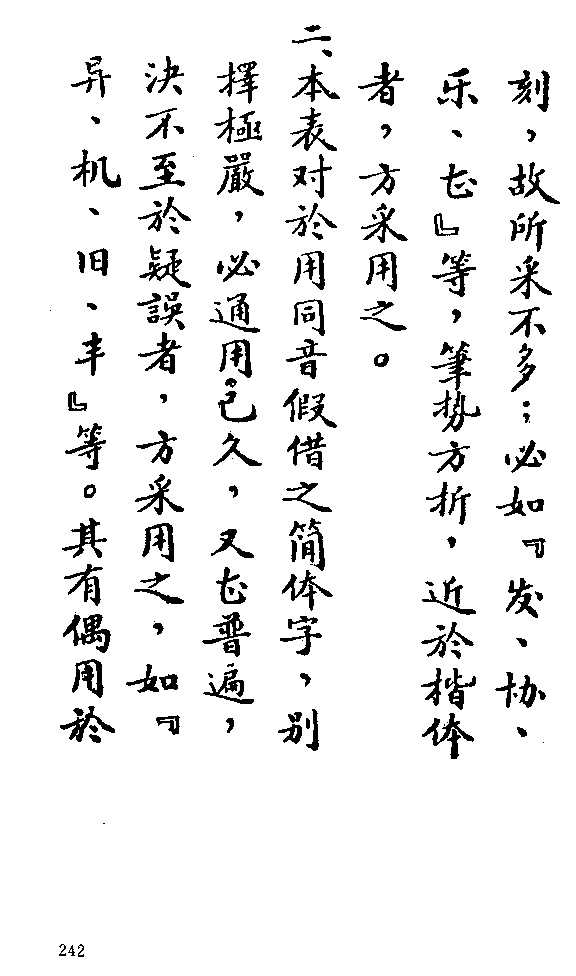 刻，故所采不多；必如『发、协、
乐、甚』等，筆势方折，近於楷体
者，方采用之。
二、本表对於用同音假借之简体字，别
擇極嚴，必通用已久，又甚普遍，
決不至於疑誤者，方采用之，如『
异、机、旧、丰』等。其有偶用於
242